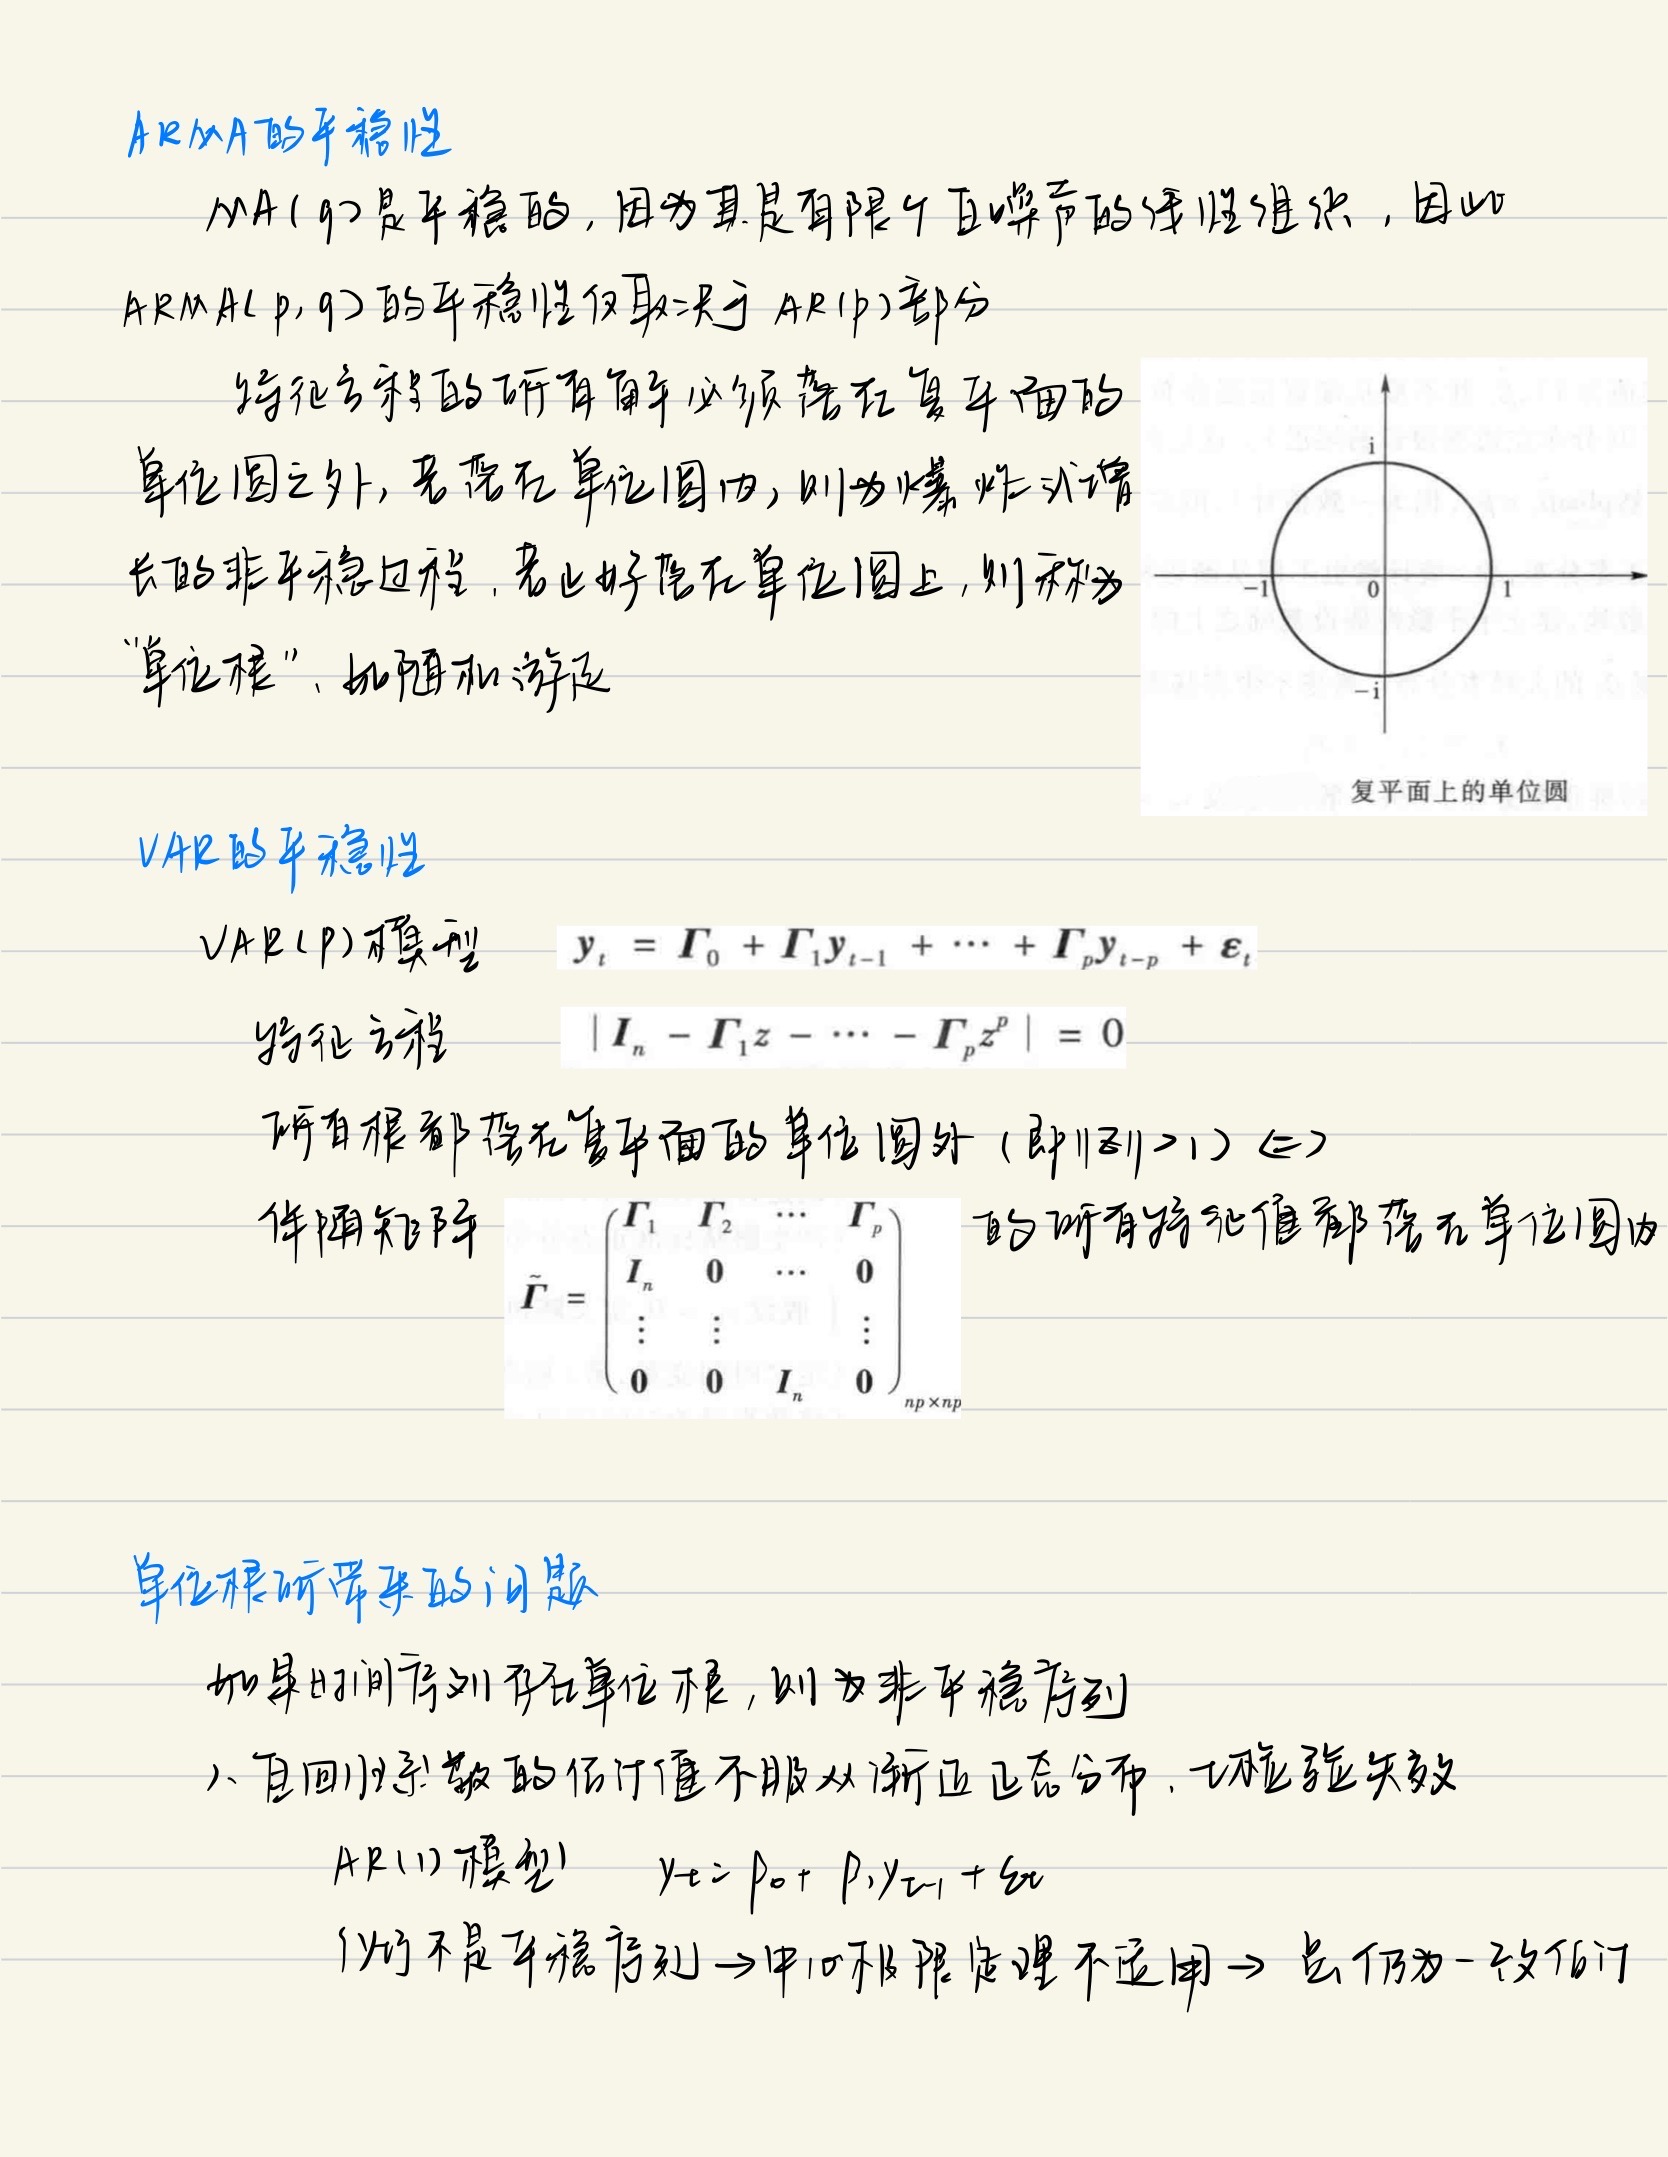 ARMA的平稳性
MA(q)是平稳的,因为其是有限个白噪声的线性组织,因此
ARMA(p,q)的平稳性仅取决于AR(p)部分
特征方程的所有解必须落在复平面的
单位圆之外,若落在单位圆内,则为爆炸式增
长的非平稳过程.若正好落在单位圆上,则称为
“单位根”、如随机游走
i
-1 0 1
-i
复平面上的单位圆
VAR的平稳性
VAR(P)模型 y_t = Γ_0 + Γ_1 y_{t-1} + ⋯ + Γ_p y_{t-p} + ε_t
特征方程 | I_n - Γ_1 z - ⋯ - Γ_p z^p | = 0
所有根都落在复平面的单位圆外(即||z||>1) <=>
伴随矩阵 的所有特征值都落在单位圆内
Γ_1 Γ_2 ⋯ Γ_p
Γ̃ = I_n 0 ⋯ 0
⋮ ⋮ ⋮
0 0 I_n 0
np×np
单位根所带来的问题
如果时间序列存在单位根,则为非平稳序列
1、自回归系数的估计值不服从渐近正态分布.t检验失效
AR(1)模型 y_t = β_0 + β_1 y_{t-1} + ε_t
{y_t}不是平稳序列→中心极限定理不适用→ 仍为一致估计